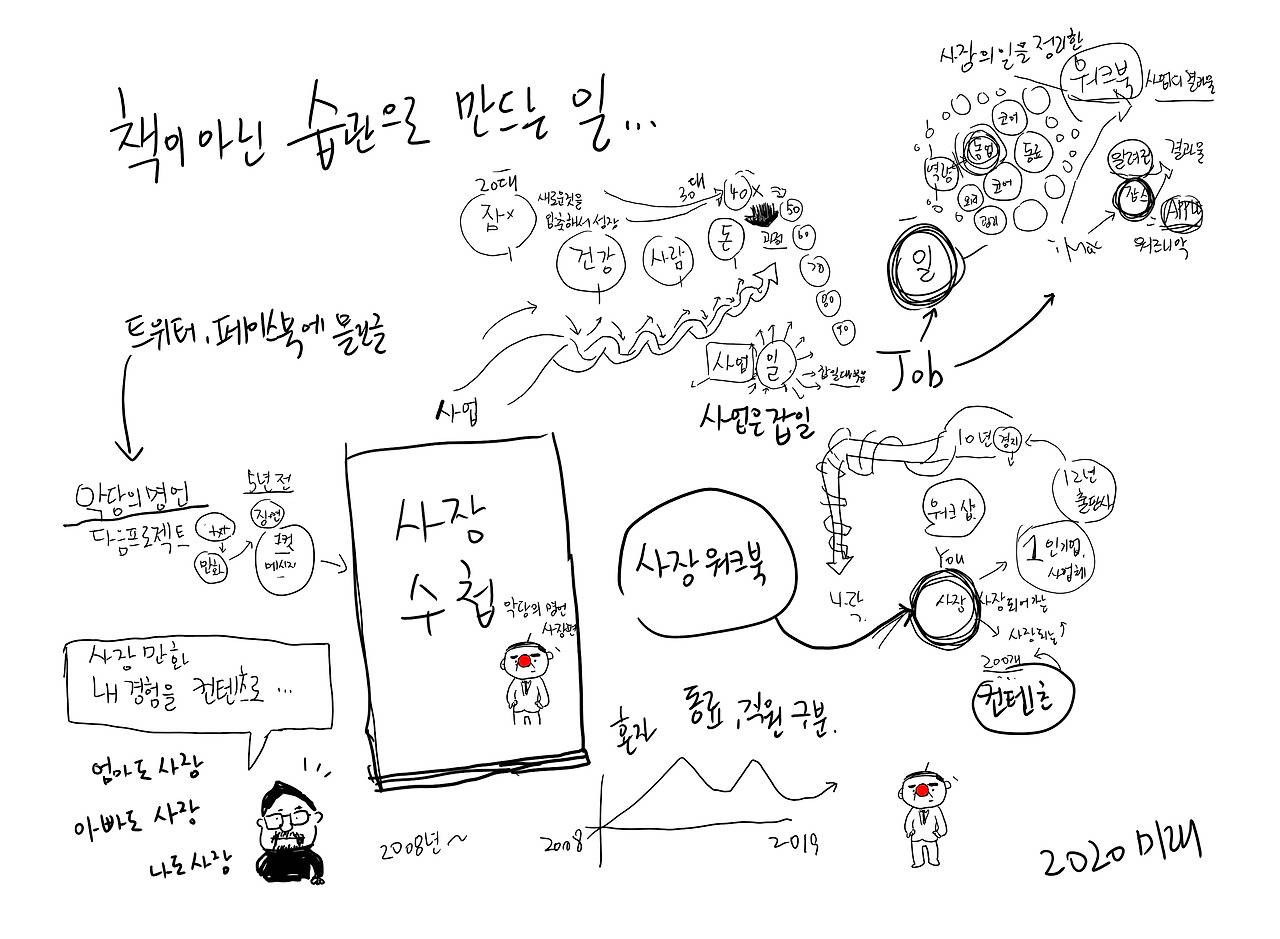 책이 아닌 습관으로 만드는 일...
사장의 일을 정리한
워크북
사업의 결과물
코어
동업
동료
역량
코어
알려진
결과물
잡스
Apple
iMac
워즈니악
일
Job
20대
잡×
새로운것을
30대
40 ×
50
60
70
80
90
건강
사람
돈
사업
사업
일
사업은 잡일
트위터, 페이스북에 올린글
악당의 명언
다음프로젝트
txt
만화
5년 전
1컷
메시지
사장
수첩
악당의 명언
사장편
사장워크북
10년
경지
12년
출판사
워크샵
1인기업,
사업체
You
사장
사장되어가는
사장되는
200개
컨텐츠
시각
사장 만화
내 경험을 컨텐츠로 ...
엄마도 사장
아빠도 사장
나도 사장
2008년 ~
혼자
동료, 직원 구분.
2008
2019
2020 미래